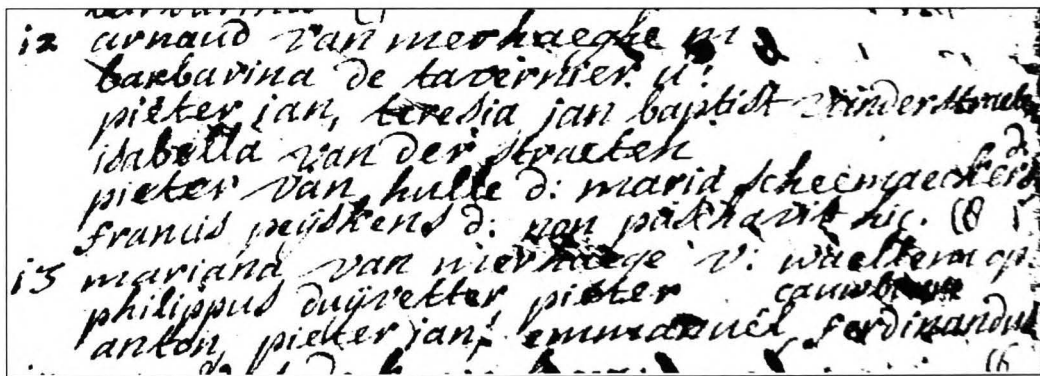 12 arnaud van merhaeghe m
barbarina de tavernier u:
pieter jan, teresia jan baptist vander straeten
isabella van der straeten
pieter van hulle d: maria scheemaeckers d
francis peijskens d: non paskhavit hic. (8
13 mariana van merhaege v: waeltem op.
philippus duijvetter, pieter cauwb
anton, pieter jan, emmanuel, ferdinandus
(6